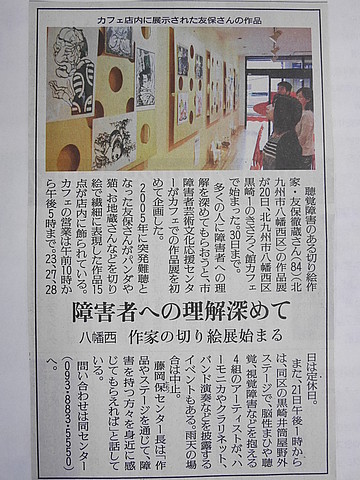 カフェ店内に展示された友保さんの作品
障害者への理解深めて
八幡西 作家の切り絵展始まる
聴覚障害のある切り絵作
家・友保徹蔵さん(84)(北
九州市八幡西区)の作品展
が20日、北九州市八幡西区
黒崎1のきさろく館カフェ
で始まった。30日まで。
多くの人に障害者への理
解を深めてもらおうと、市
障害者芸術文化応援センタ
ーがカフェでの作品展を初
めて企画した。
2005年に突発難聴と
なった友保さんがパンダや
猫、お地蔵さんなどを切り
絵で繊細に表現した作品15
点が店内に飾られている。
カフェの営業は午前10時か
ら午後5時まで。23、27、28
日は定休日。
また、21日午後1時から
は、同区の黒崎井筒屋野外
ステージで、脳性まひや聴
覚、視覚障害などを抱える
4組のアーティストが、ハ
ーモニカやクラリネット、
バンド演奏などを披露する
イベントもある。雨天の場
合は中止。
藤岡保センター長は「作
品やステージを通じて、障
害を持つ方々を身近に感
じてもらえれば」と話して
いる。
問い合わせは同センター
(093・883・5550)
へ。